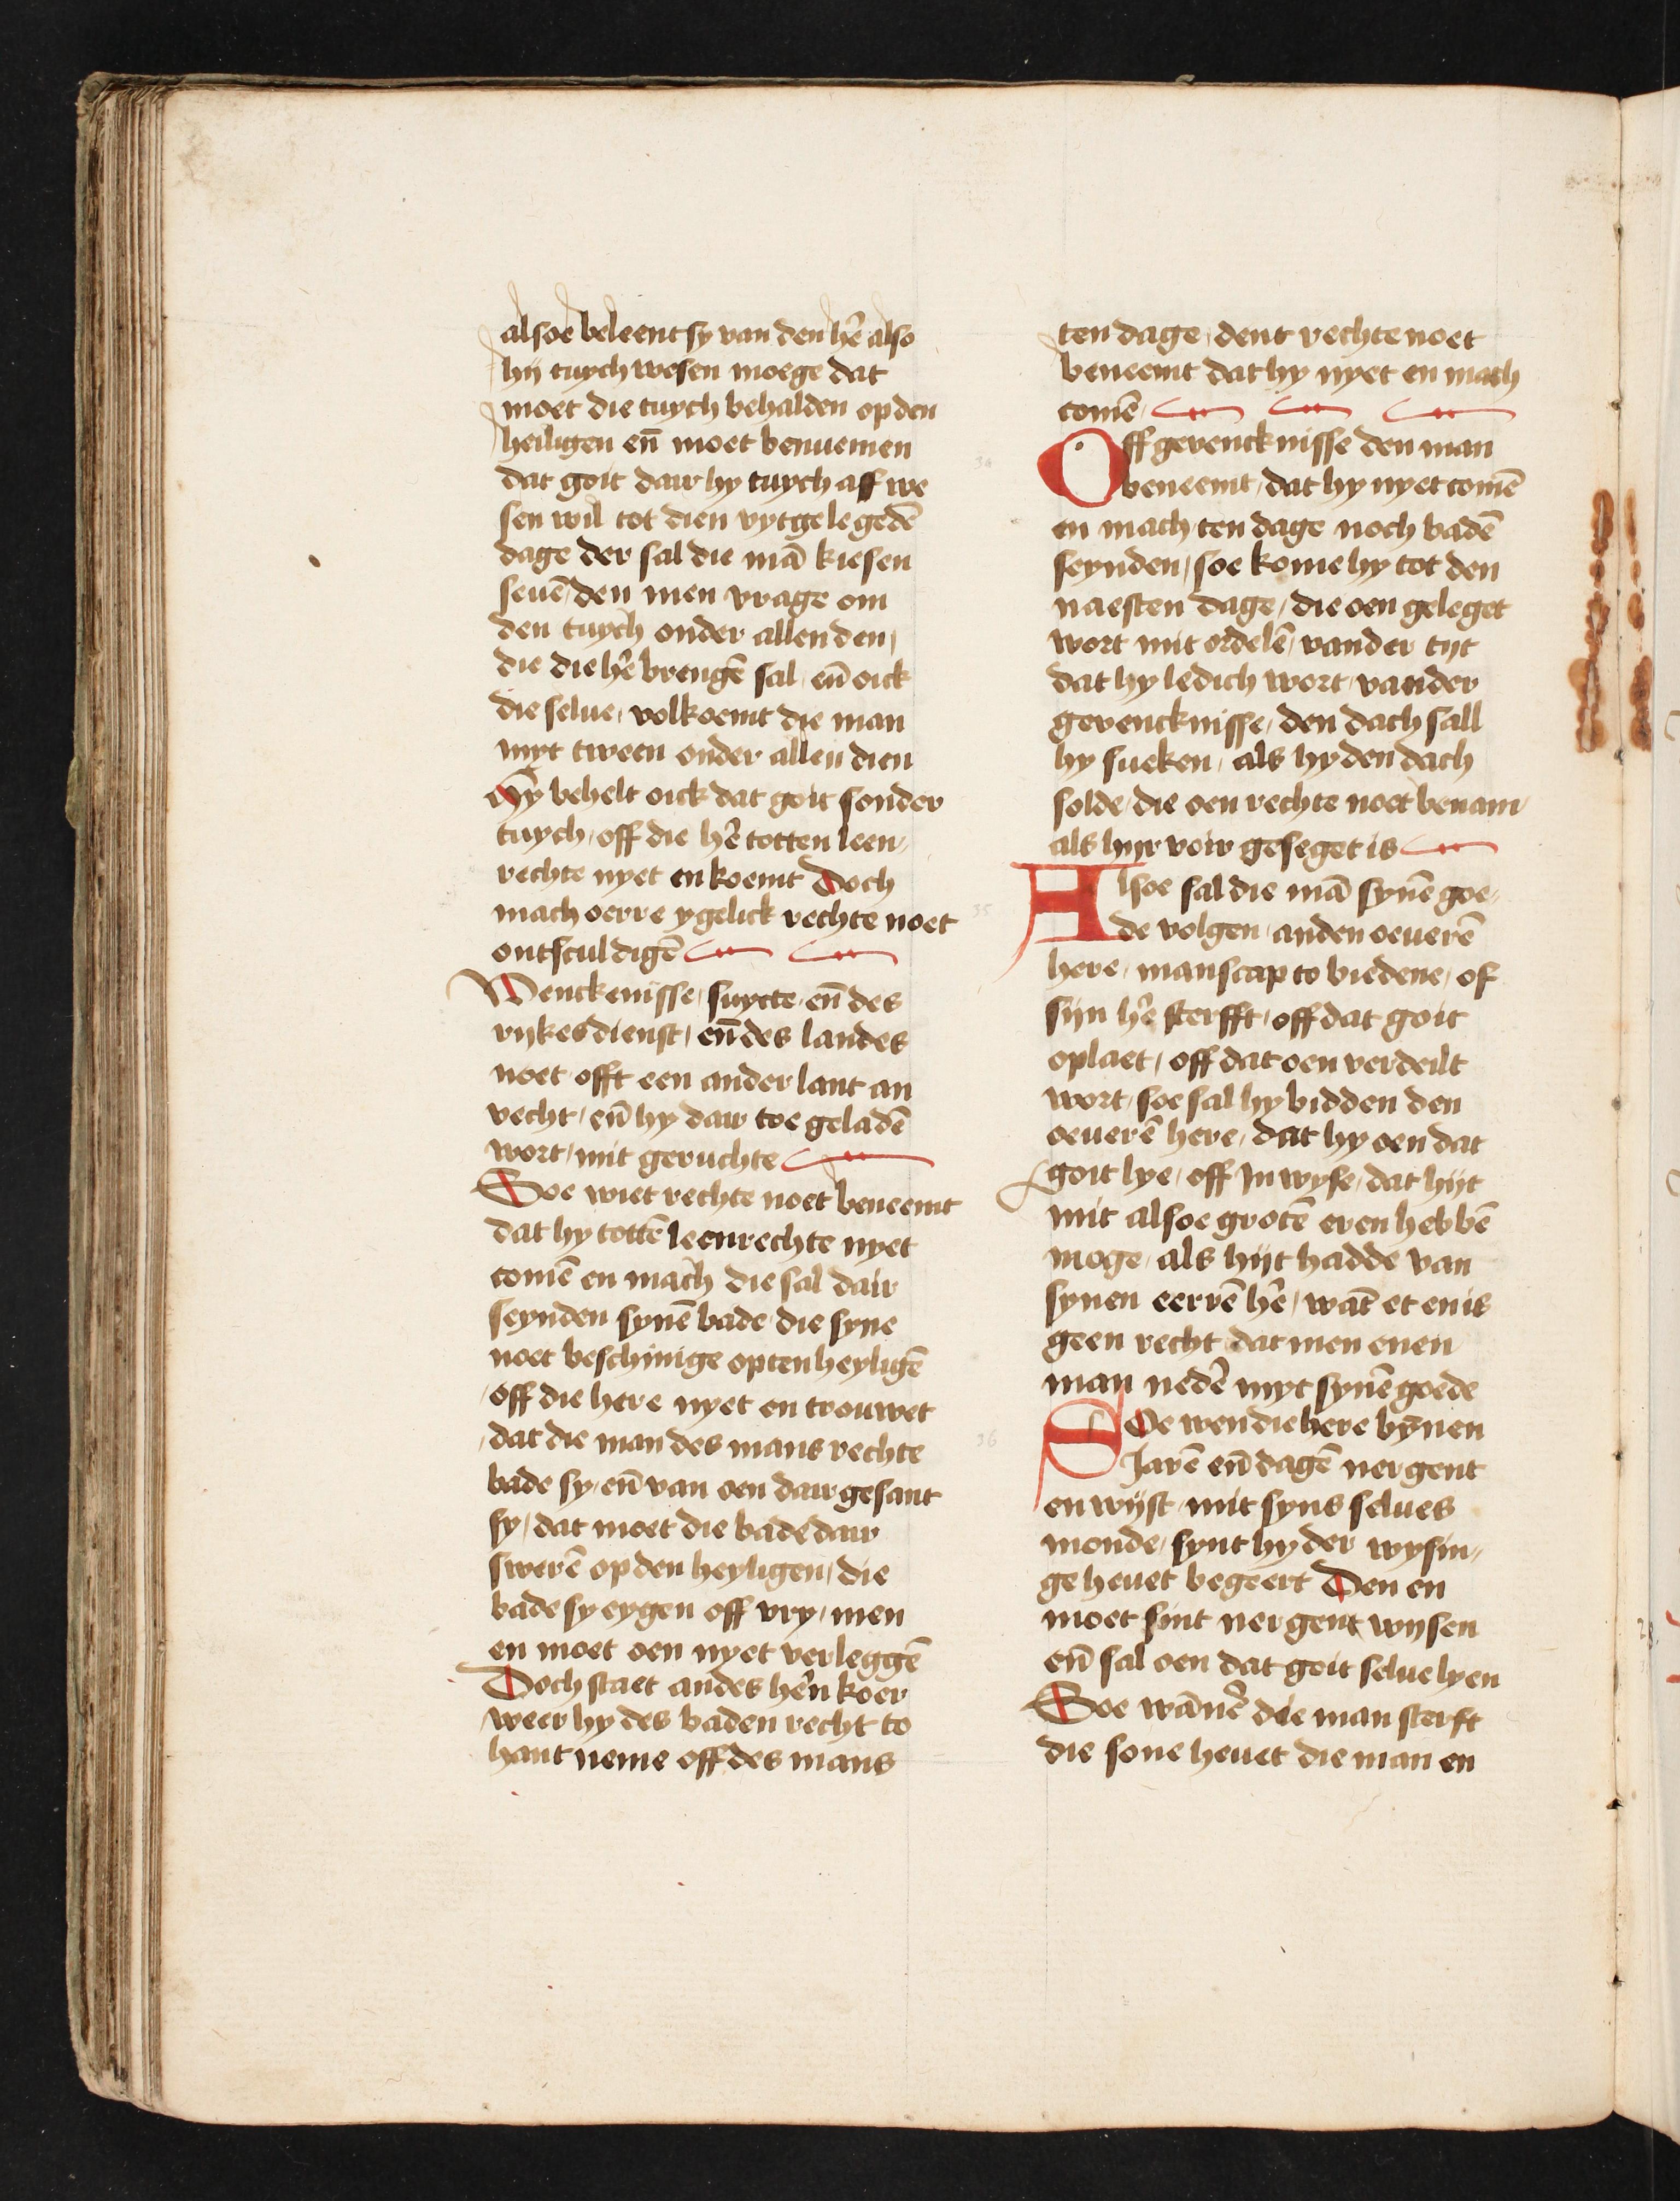 alsoe beleent sy van den hē also
hij tuych wesen moege dat
moet die tuych behalden op den
heiligen eñ moet benuemen
dat goit dair hy tuych aff we
sen wil tot dien vytgelegedē
dage der sal die mā kiesen
seuē den men vrage om
den tuych onder allen den
die die hē brengē sal eñ oick
die selue volkoemt die man
myt tween onder allen dien
Hy behelt oick dat goit sonder
tuych off die hē totten leen
rechte nyet en koemt Doch
mach oerre ygelick rechte noet
ontsculdigē
Venckenisse suycte eñ des
rijkes dienst eñ des landes
noet offt een ander lant an
vecht eñ hy dair toe geladē
wort mit geruchte
Soe wiet rechte noet beneemt
dat hy tottē leenrechte nyet
comē en mach die sal dair
seynden synē bade die syne
noet beschinige opten heyligē
off die here nyet en trouwet
dat die man des mans rechte
bade sy eñ van oen dair gesant
sy dat moet die bade dair
swerē op den heyligen die
bade sy eygen off vry men
en moet oen nyet verleggē
Doch staet an des hēn koer
weer hy des baden recht to
hant neme off des mans
ten dage dent rechte noet
beneemt dat hy nyet en mach
comē
34
Off gevencknisse den man
beneemt dat hy nyet comē
en mach ten dage noch badē
seynden soe kome hy tot den
naesten dage die oen geleget
wort mit ordelē vander tijt
dat hy ledich wort vander
gevencknisse den dach sall
hy sueken als hy den dach
solde die oen rechte noet benam
als hijr voir geseget is
35
Alsoe sal die mā synē goe
de volgen an den oeuerē
here manscap to biedene of
sijn hē sterfft off dat goit
oplaet off dat oen verdeilt
wort soe sal hy bidden den
oeuerē here dat hy oen dat
goit lye off in wyse dat hijt
mit alsoe grotē eren hebbē
moge als hijt hadde van
synen eerrē hē wāt et en is
geen recht dat men enen
man nedē myt synē goede
36
Soe wen die here bynen
Jarē eñ dagē nergent
en wijst mit syns selues
monde synt hy der wysin
ge heuet begeert Den en
moet sint nergent wijsen
eñ sal oen dat goit selue lyen
Soe wānē die man sterft
die sone heuet die man en